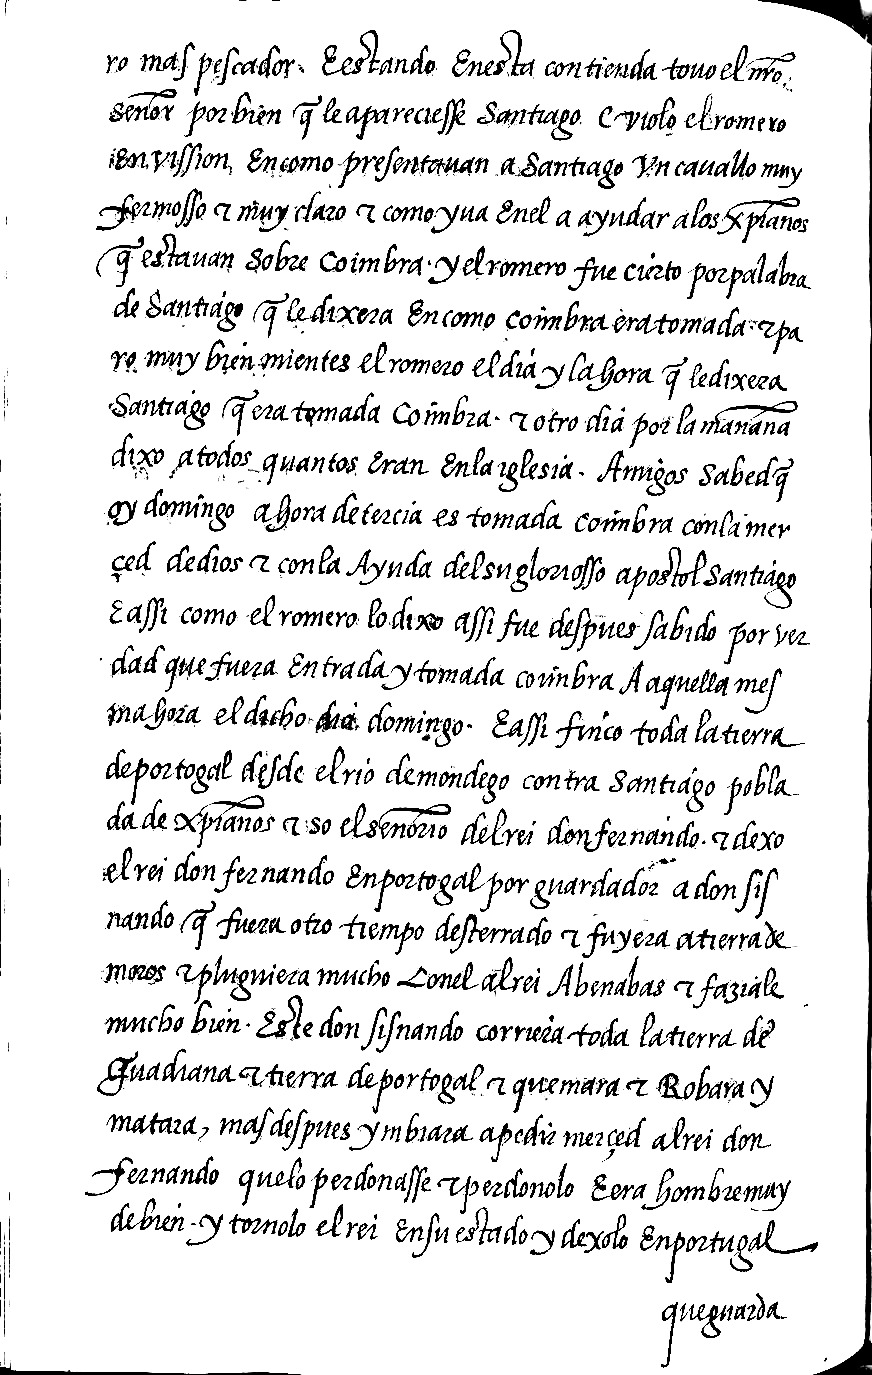 ro mas pescador. E estando Enesta contienda touo el nr̃o
señor por bien q̃ le apareciesse Santiago E violo el romero
En vission, En como presentauan a Santiago Vn cauallo muy
fermosso ⁊ muy claro ⁊ como yua Enel a ayudar a los xp̃ianos
q̃ estauan Sobre Coimbra. y el romero fue cierto por palabra
de Santiago q̃ le dixera En como Coimbra era tomada ⁊ pa
ro muy bien mientes el romero el dia y la hora q̃ le dixera
Santiago q̃ era tomada Coimbra. ⁊ otro dia por la mañana
dixo a todos quantos Eran En la iglesia. Amigos Sabed q̃
oy domingo a hora de tercia es tomada Coimbra con la mer
çed de dios ⁊ con la Ayuda del su gloriosso apostol Santiago
E assi como el romero lo dixo assi fue despues sabido por ver
dad que fuera Entrada y tomada coimbra A aquella mes
ma hora el dicho dia domingo. E assi finco toda la tierra
de portogal desde el rio de mondego contra Santiago pobla
da de xp̃ianos ⁊ so el señorio del rei don fernando. ⁊ dexo
el rei don fernando En portogal por guardador a don sis
nando q̃ fuera otro tiempo desterrado ⁊ fuyera a tierra de
moros ⁊ pluguiera mucho Conel al rei Abenabas ⁊ faziale
mucho bien. Este don sisnando corriera toda la tierra de
Guadiana ⁊ tierra de portogal ⁊ quemara ⁊ Robara y
matara, mas despues ymbiara a pedir merçed al rei don
fernando que lo perdonasse ⁊ perdonolo E era hombre muy
de bien. y tornolo el rei En su estado y dexolo En portugal
que guarda